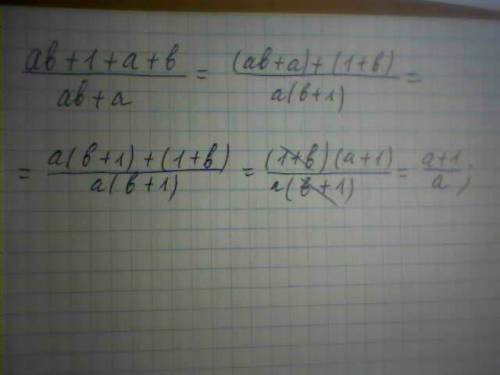 (ab+1+a+b)/(ab+a) = ((ab+a)+(1+b))/(a(b+1)) =
= (a(b+1)+(1+b))/(a(b+1)) = ((1+b)(a+1))/(a(b+1)) = (a+1)/a;